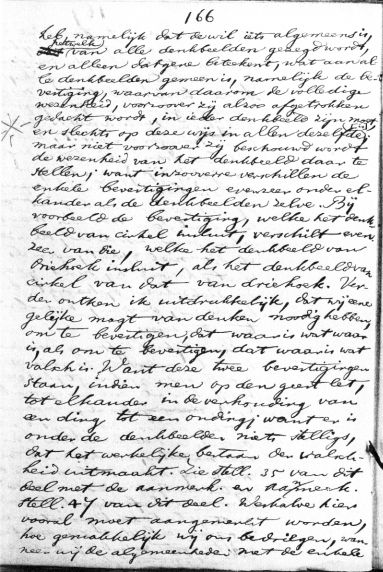 166
hel, namelijk dat de wil iets algemeens is,
hetwelk van alle denkbeelden gezegd wordt,
en alleen datgene beteekent, wat aan al
le denkbeelden gemeen is, namelijk de be-
vestiging, waarvan daarom de volledige
wezenheid, voorzoover zij alzoo afgetrokken
gedacht wordt, in ieder denkbeelde zijn moet,
en slechts op deze wijs in allen dezelfde;
maar niet voorzoover zij beschouwd wordt
de wezenheid van het denkbeeld daar te
stellen; want inzooverre verschillen de
enkele bevestigingen evenzeer onder el-
kander als de denkbeelden zelve. Bij
voorbeeld de bevestiging, welke het denk-
beeld van cirkel insluit, verschilt even
zeer van die, welke het denkbeeld van
driehoek insluit, als het denkbeeld van
cirkel van dat van driehoek. Ver-
der ontken ik uitdrukkelijk, dat wij eene
gelijke magt van denken noodig hebben,
om te bevestigen, dat waar is wat waar
is, als om te bevestigen, dat waar is wat
valsch is. Want deze twee bevestigingen
staan, indien men op den geest let,
tot elkander in de verhouding van
een ding tot een onding; want er is
onder de denkbeelden niets stelligs,
dat het werkelijke bestaan der valsch-
heid uitmaakt. Zie Stell. 35 van dit
deel met de aanmerk. en aanmerk.
Stell. 47 van dit deel. Weshalve hier
vooral moet aangemerkt worden,
hoe gemakkelijk wij ons bedriegen, wan-
neer wij de algemeenheden met de enkele